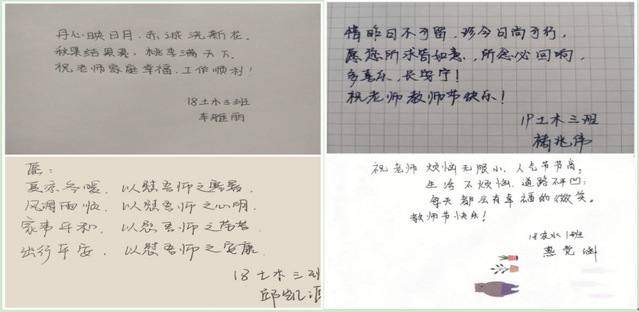 丹心映日月，赤诚浇新花。
秋果结累累，桃李满天下。
祝老师家庭幸福，工作顺利！
18土木三班
车雅丽
惜昨日不可留，珍今日尚可行，
愿您所求皆如意，所念必回响，
多喜乐，长安宁！
祝老师教师节快乐！
18土木三班
杨兆伟
愿：
夏凉冬暖，以慰吾师之
风调雨顺，以慰吾师之心明，
家事平和，以慰吾师之
出行平安，以慰吾师之安康
18土木三班
邱
祝老师 烦恼无限小，人气节节高；
生活不烦恼，道路不凹凸；
每天都会有幸福的微笑。
教师节快乐！
18农水1班
燕